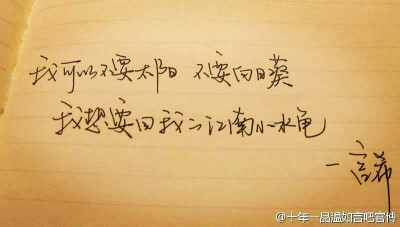 我可以不要太阳 不要向日葵
我想要回我的江南小水龟
—言希
@十年一品温如言吧官博